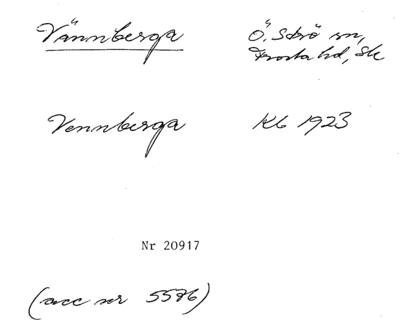 Vännberga Ö. Strö sn,
Frosta hd, Sk
Vennberga Kb 1923
Nr 20917
(acc nr 5576)